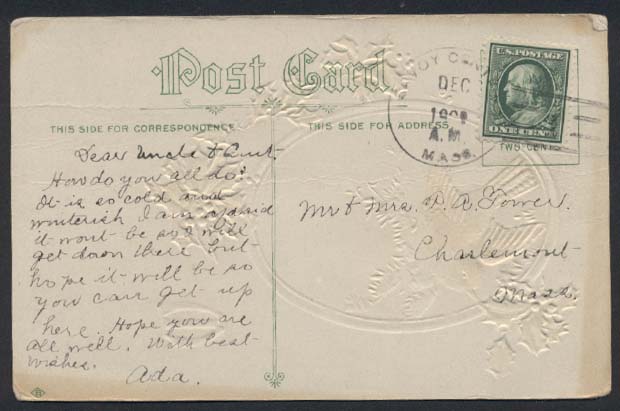 Post Card
THIS SIDE FOR CORRESPONDENCE
THIS SIDE FOR ADDRESS
U.S. POSTAGE
ONE CENT
TWO CENT
DEC
A.M.
MASS.
Dear Uncle & Aunt.
How do you all do?
It is so cold and
winterish I am afraid
it wont be so I will
get down there but
hope it will be so
you can get up
here. Hope you are
all well. With best
wishes.
Ada.
Mr & Mrs. A. Tower.
Charlemont
Mass.